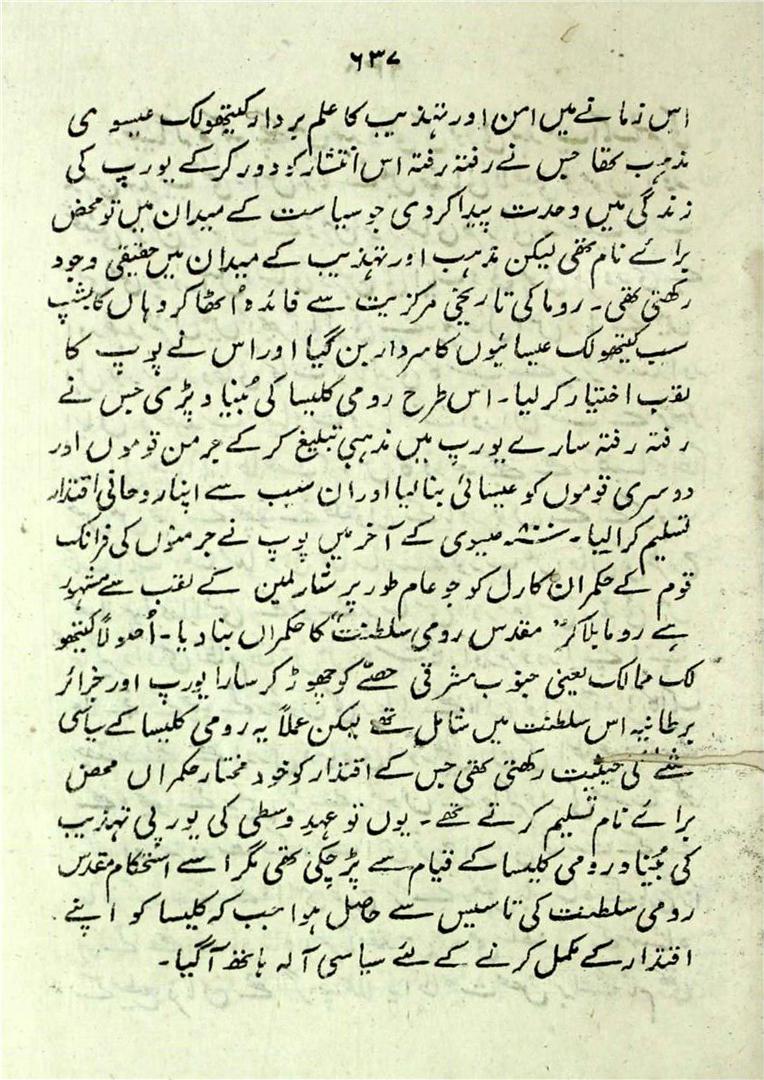 ۶۳۷
اس زمانے میں امن اور تہذیب کا علم بردار کیتھولک عیسوی
مذہب تھا جس نے رفتہ رفتہ اس انتشار کو دور کرکے یورپ کی
زندگی میں وحدت پیدا کردی جو سیاست کے میدان میں تو محض
برائے نام تھی لیکن مذہب اور تہذیب کے میدان میں حقیقی وجود
رکھتی تھی۔ روما کی تاریخی مرکزیت سے فائدہ اُٹھا کر وہاں کا بشپ
سب کیتھولک عیسائیوں کا سردار بن گیا اور اس نے پوپ کا
لقب اختیار کر لیا۔ اس طرح رومی کلیسا کی بُنیاد پڑی جس نے
رفتہ رفتہ سارے یورپ میں مذہبی تبلیغ کر کے جرمن قوموں اور
دوسری قوموں کو عیسائی بنا لیا اور ان سب سے اپنا روحانی اقتدار
تسلیم کرا لیا۔ سنہ ۸۰۰ عیسوی کے آخر میں پوپ نے جرمنوں کی فرانک
قوم کے حکمران کارل کو جو عام طور پر شارلمین کے لقب سے مشہور
ہے روما بلا کر "مقدس رومی سلطنت" کا حکمراں بنا دیا۔ اُصولاً کیتھو
لک ممالک یعنی جنوب مشرقی حصّے کو چھوڑ کر سارا یورپ اور جزائر
برطانیہ اس سلطنت میں شامل تھے لیکن عملاً یہ رومی کلیسا کے سیاسی
کی حیثیت رکھتی تھی جس کے اقتدار کو خود مختار حکمراں محض
برائے نام تسلیم کرتے تھے۔ یوں تو عہد وسطی کی یورپی تہذیب
کی بُنیاد رومی کلیسا کے قیام سے پڑ چکی تھی مگر اسے استحکام مقدس
رومی سلطنت کی تاسیس سے حاصل ہوا جب کہ کلیسا کو اپنے
اقتدار کے مکمل کرنے کے لئے سیاسی آلہ ہاتھ آگیا۔